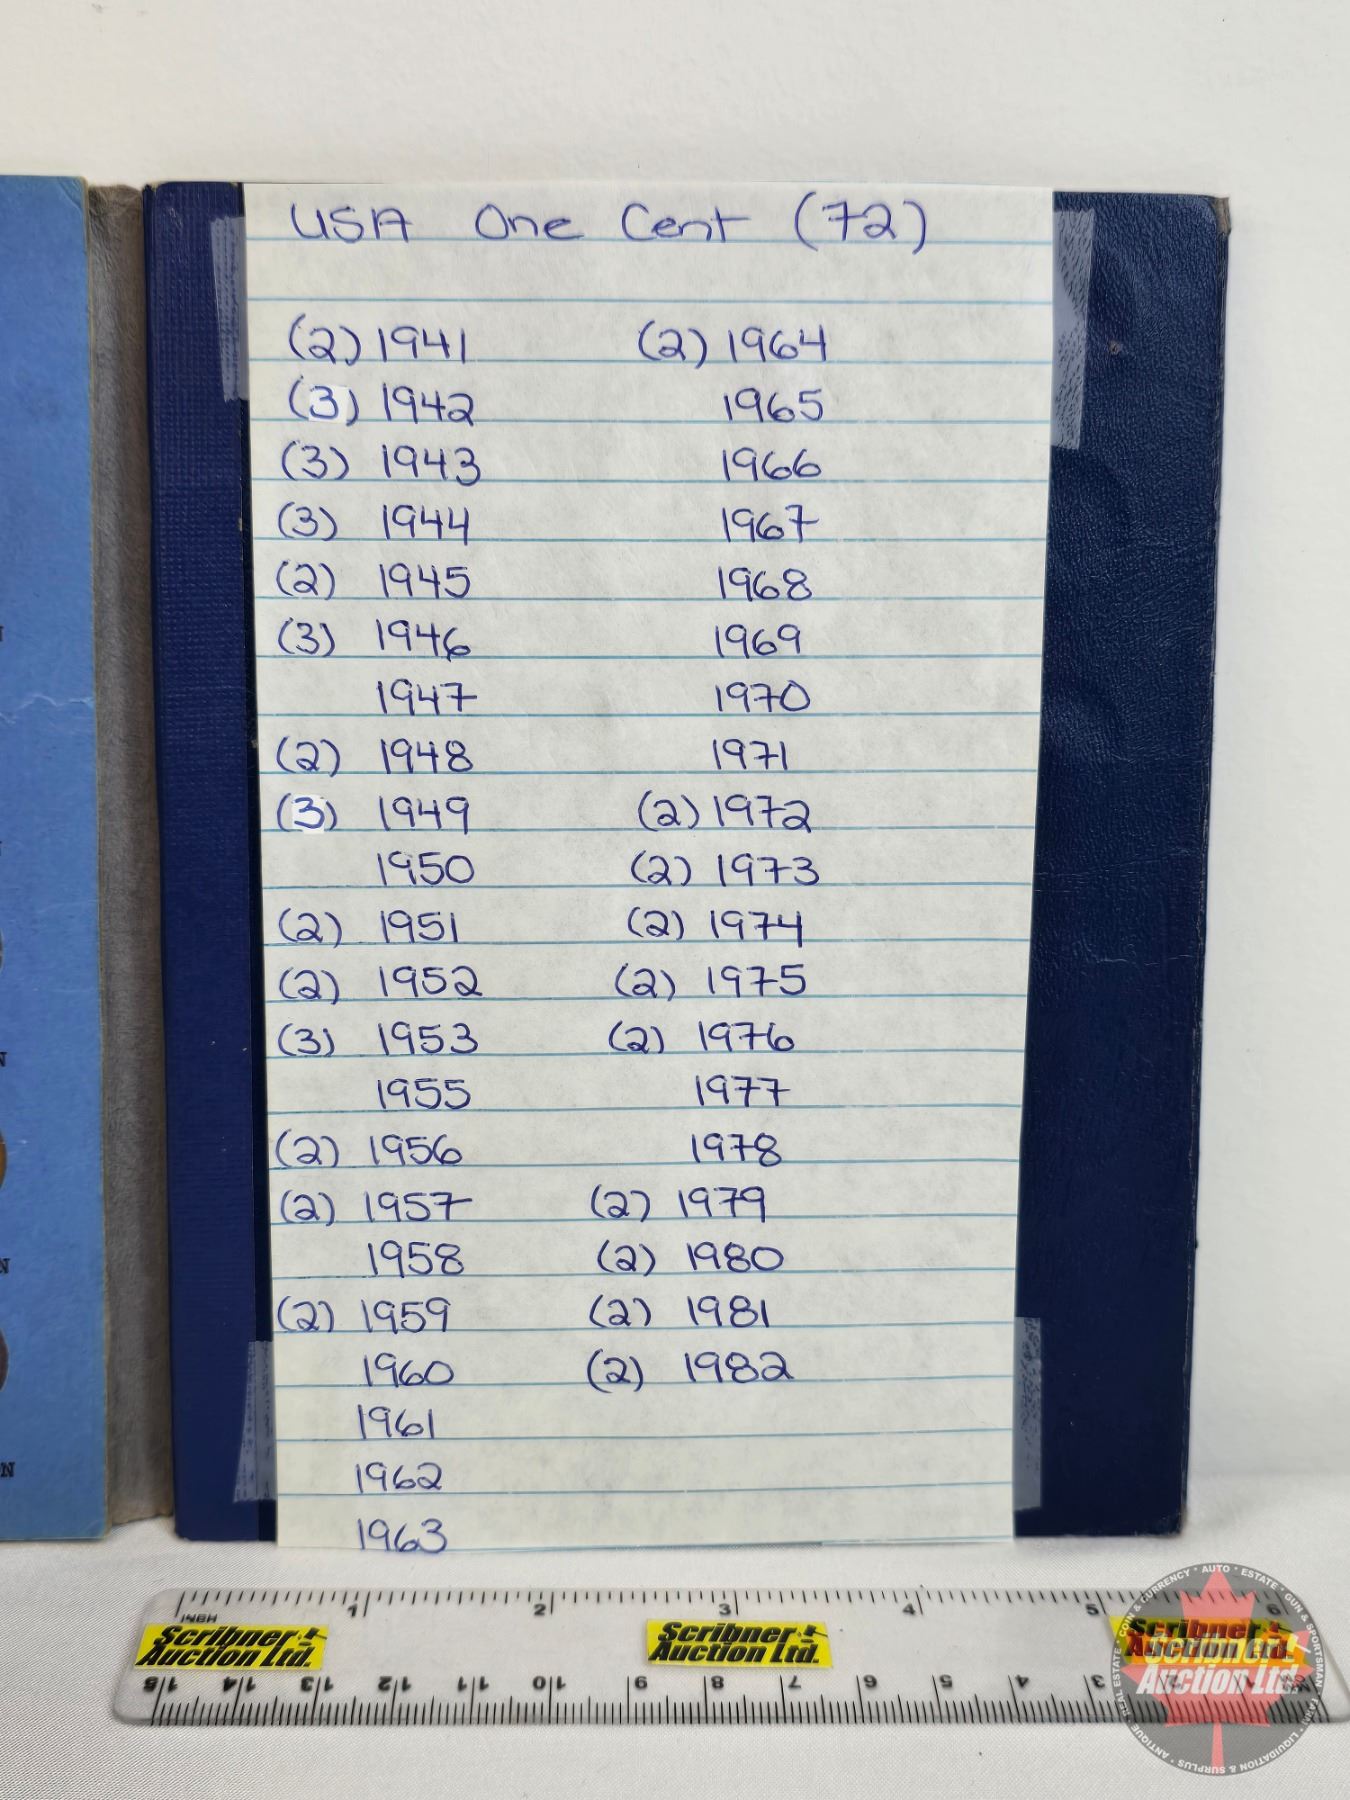 USA One Cent (72)
(2) 1941
(3) 1942
(3) 1943
(3) 1944
(2) 1945
(3) 1946
1947
(2) 1948
(3) 1949
1950
(2) 1951
(2) 1952
(3) 1953
1955
(2) 1956
(2) 1957
1958
(2) 1959
1960
1961
1962
1963
(2) 1964
1965
1966
1967
1968
1969
1970
1971
(2) 1972
(2) 1973
(2) 1974
(2) 1975
(2) 1976
1977
1978
(2) 1979
(2) 1980
(2) 1981
(2) 1982
N
N
N
N
ON
1 2 3 4 5 6
INCH
Scribner
Auction Ltd.
Scribner
Auction Ltd.
Scribner
Auction Ltd.
15 14 13 12 11 10 9 8 7 6 5 4 3
Scribner
Auction Ltd.
COIN & CURRENCY • AUTO • ESTATE • GUN & SPORTSMAN • FARM • LIQUIDATION & SURPLUS • ANTIQUE • REAL ESTATE